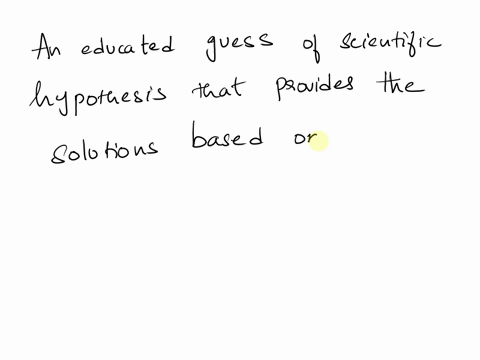 An educated guess of scientific
hypothesis that provides the
solutions based or